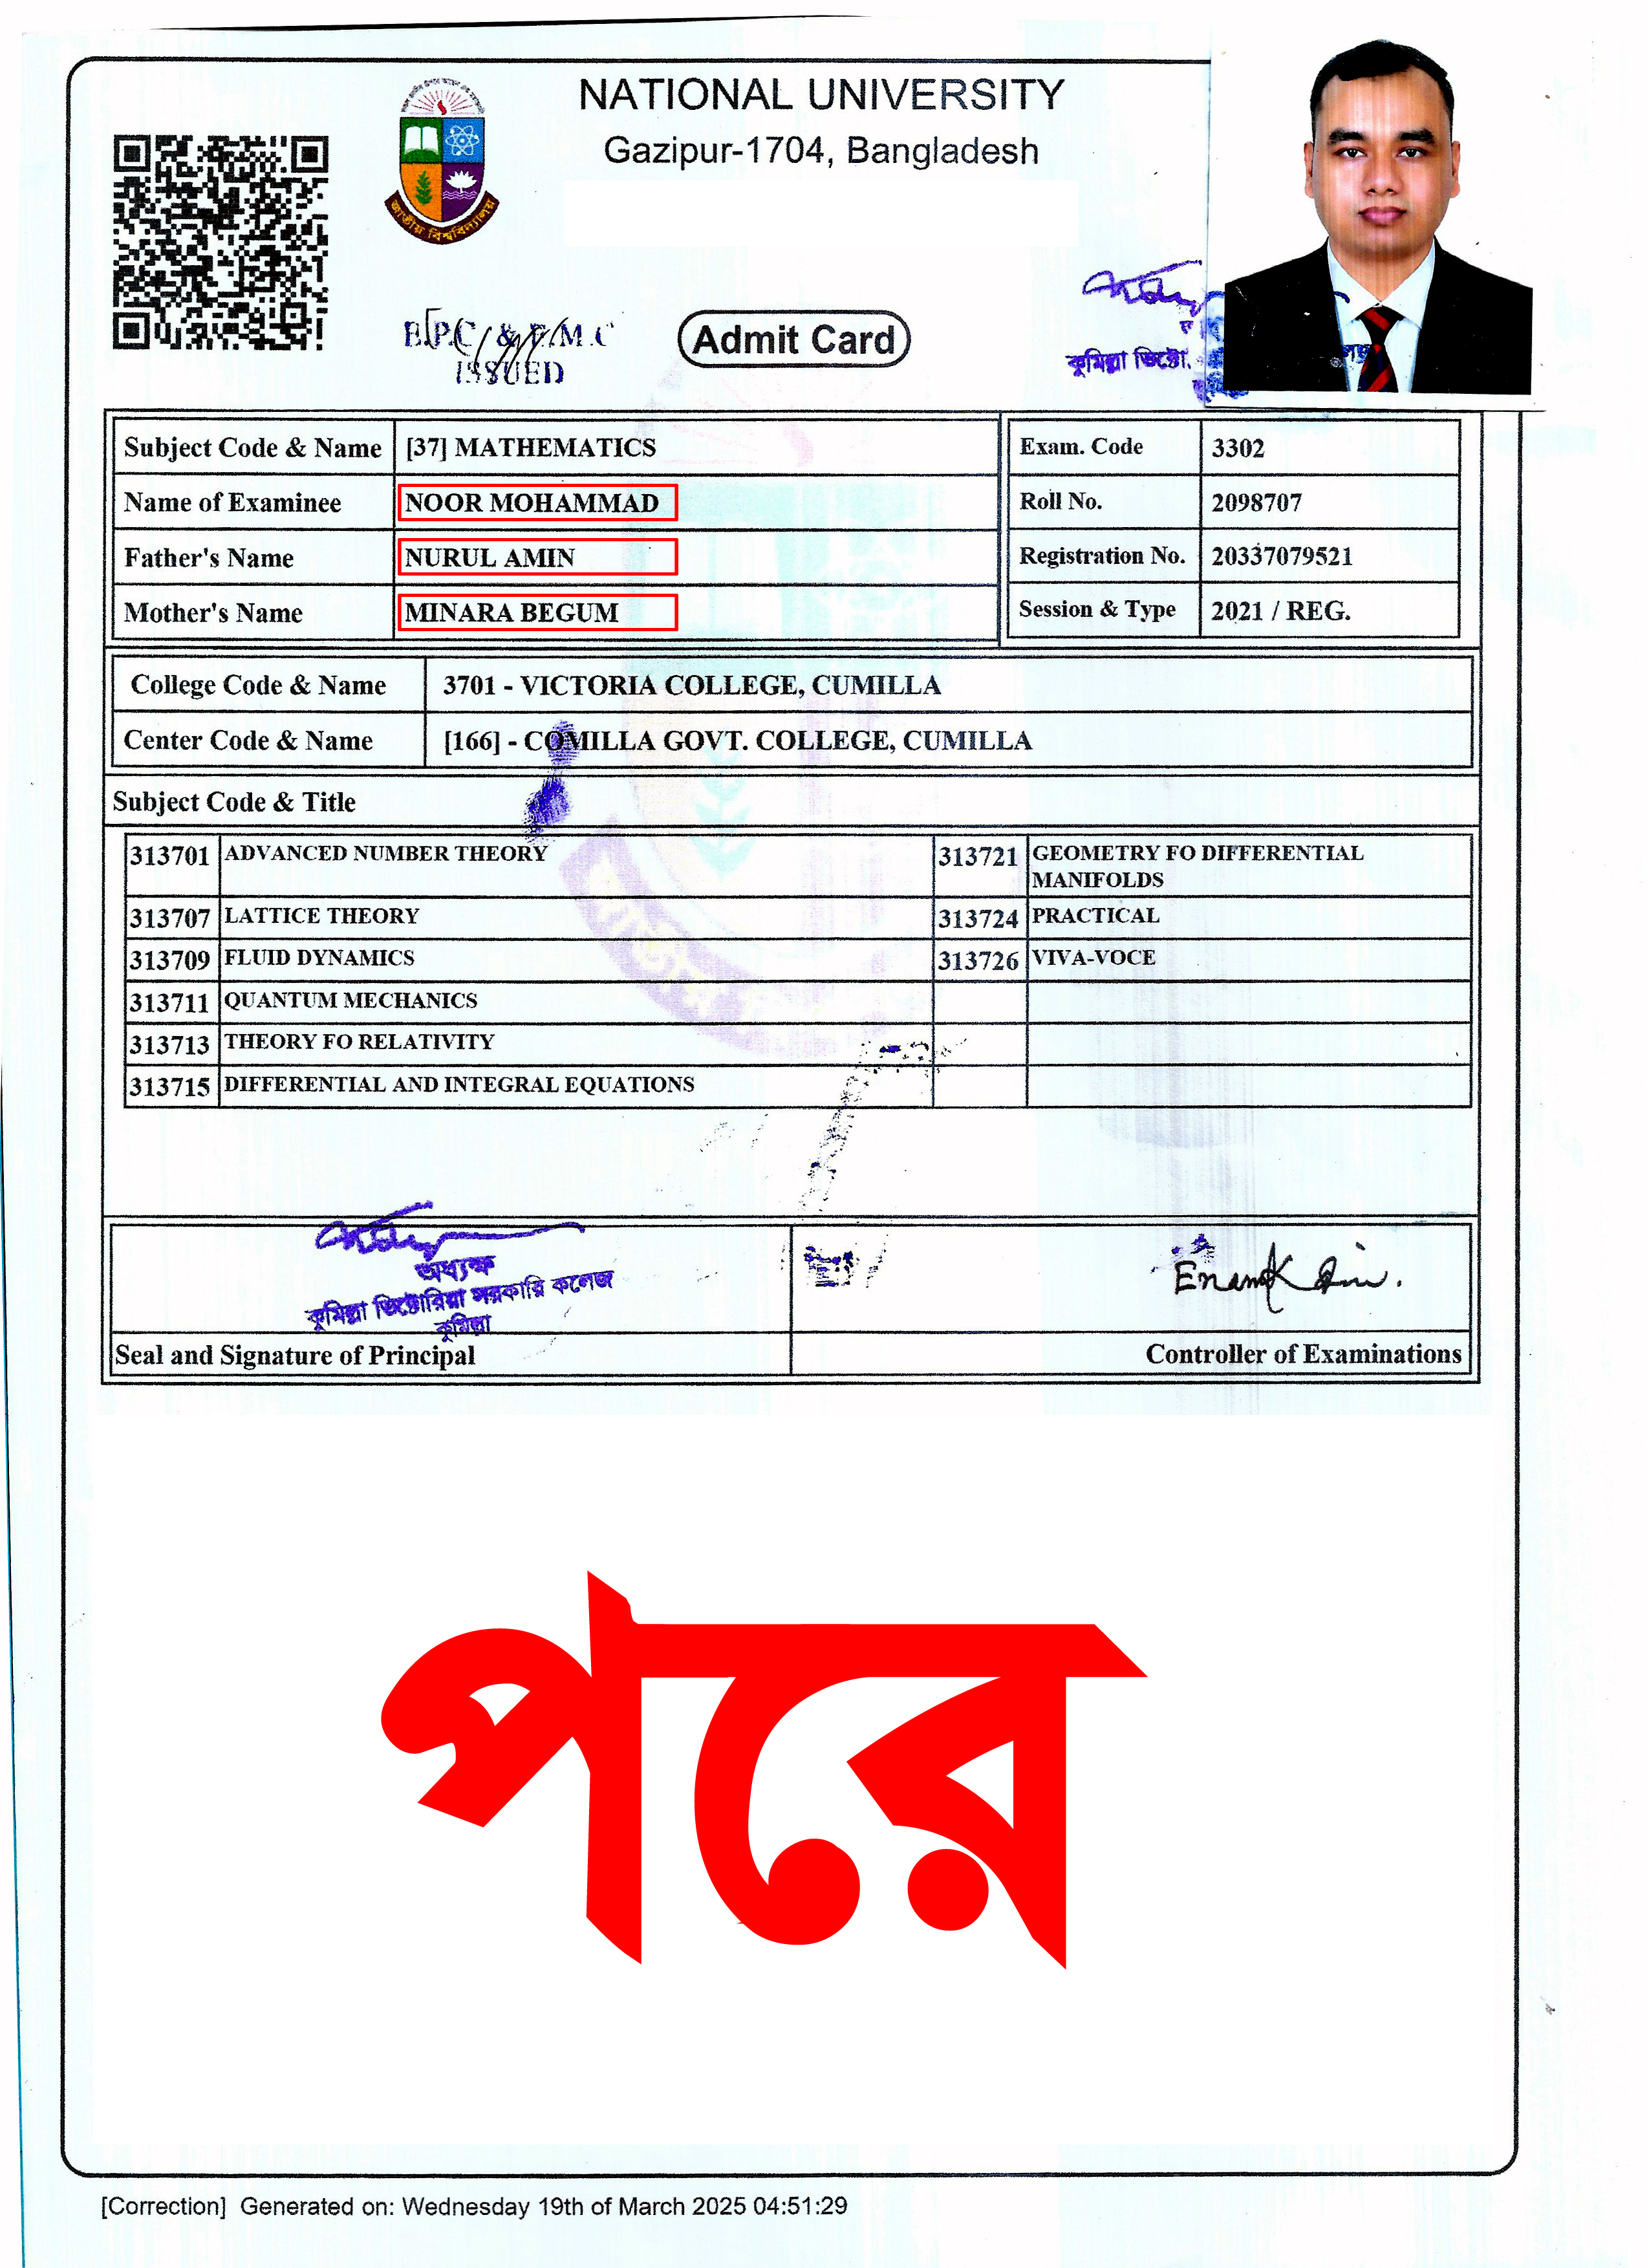 NATIONAL UNIVERSITY
Gazipur-1704, Bangladesh
জাতীয় বিশ্ববিদ্যালয়
ISSUED
Admit Card
কুমিল্লা ভিক্টো
Subject Code & Name [37] MATHEMATICS
Name of Examinee NOOR MOHAMMAD
Father's Name NURUL AMIN
Mother's Name MINARA BEGUM
Exam. Code 3302
Roll No. 2098707
Registration No. 20337079521
Session & Type 2021 / REG.
College Code & Name 3701 - VICTORIA COLLEGE, CUMILLA
Center Code & Name [166] - COMILLA GOVT. COLLEGE, CUMILLA
Subject Code & Title
313701 ADVANCED NUMBER THEORY 313721 GEOMETRY FO DIFFERENTIAL
MANIFOLDS
313707 LATTICE THEORY 313724 PRACTICAL
313709 FLUID DYNAMICS 313726 VIVA-VOCE
313711 QUANTUM MECHANICS
313713 THEORY FO RELATIVITY
313715 DIFFERENTIAL AND INTEGRAL EQUATIONS
অধ্যক্ষ
কুমিল্লা ভিক্টোরিয়া সরকারি কলেজ
কুমিল্লা
Seal and Signature of Principal Controller of Examinations
পরে
[Correction] Generated on: Wednesday 19th of March 2025 04:51:29